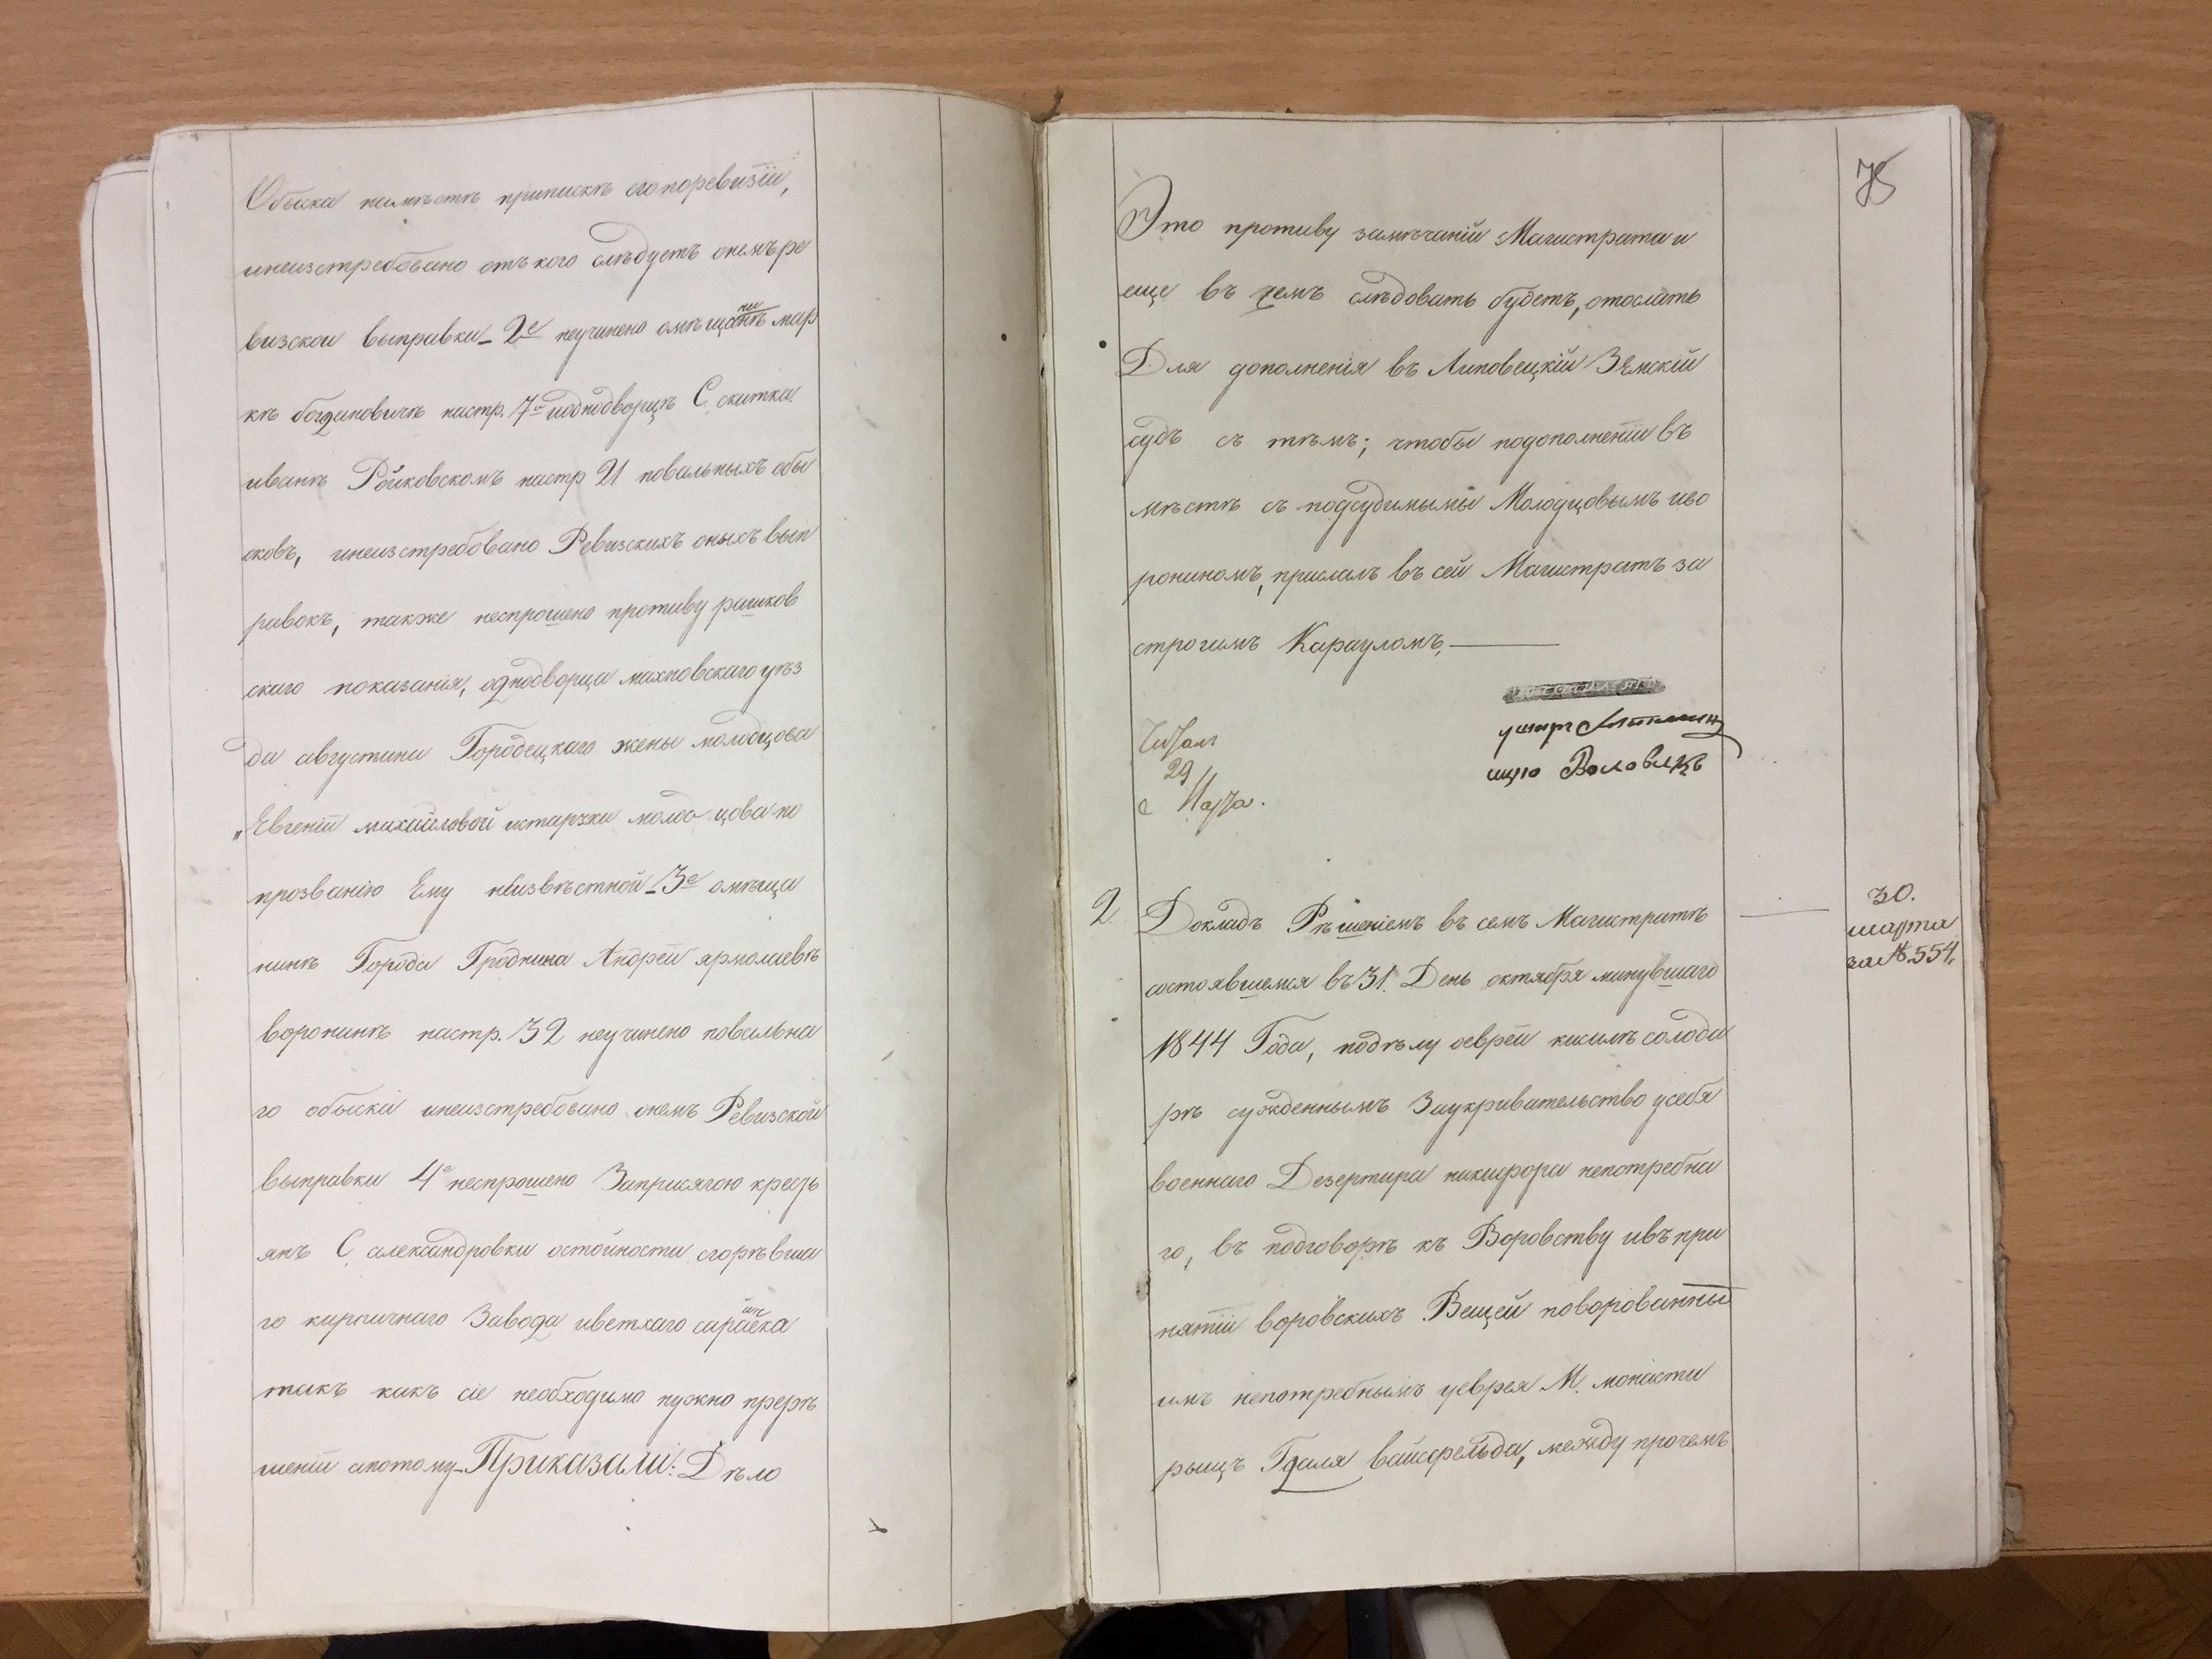 Обыска намѣстѣ припискѣ егопоревизіи,
инеизстребовано отъ кого слѣдуетъ онемъ ре
визской выправки_ 2е неучинено омѣщанинѣ мар
кѣ богдановичѣ настр. 7й иоднодворцѣ С. скитка
иванѣ Ройковскомъ настр 21 повальныхъ обы
сковъ, инеизстребовано Ревизскихъ оныхъ вып
равокъ, также неспрошено противу рашков
скаго показанія, однодворца махновскаго уѣз
да августина Городецкаго жены молодцова
„Евгеніи михайловой истарухи молодцова по
прозванію Ему неизвѣстной_ 3е омѣща
нинѣ Города Гродница Андрей ярмолаевѣ
воронинѣ настр. 32 неучинено повально
го обыска инеизстребовано онемъ Ревизской
выправки 4е неспрошено Заприсягою кресть
янъ С. александровки остойности сгорѣвша
го кирпичнаго Завода иветхаго сарайска
такъ какъ сіе необходимо нужно прерѣ
шеніи апотому_ Приказали: Дѣло
75
Это противу замѣчаній Магистрата и
еще въ чемъ слѣдовать будетъ, отослать
Для дополненія въ Липовецкій Земскій
судъ съ тѣмъ; чтобы подополненіи въ
мѣстѣ съ подсудимымы Молодцовымъ иво
ронинымъ, прислалъ въ сей Магистратъ за
строгимъ Карауломъ,
Читалъ
29
Марта.
Воловикъ
2. Докладъ Рѣшеніемъ въ семъ Магистратѣ
30.
марта
за № 554.
состоявшемся въ 31. День октября минувшаго
1844 Года, подѣлу оеврей кисилѣ солода
рѣ сужденнымъ Заукривательство усебя
военнаго Дезертира никифора непотребна
го, въ подговорѣ къ Воровству ивъ при
нятіи воровскихъ Вещей поворованны
имъ непотребнымъ уеврея М. монасты
рыщъ Гдаля вайсфельда, между прочемъ